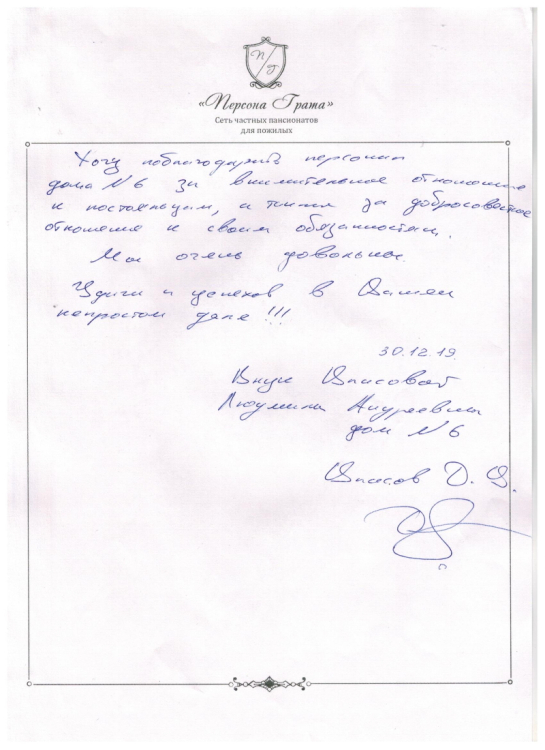 П Г
«Персона Грата»
Сеть частных пансионатов
для пожилых
Хочу поблагодарить персонал
дома №6 за внимательное отношение
к постояльцам, а также за добросовестное
отношение к своим обязанностям.
Мы очень довольны.
Удачи и успехов в Вашем
непростом деле!!!
30.12.19.
Внук
Людмилы Андреевны
дом №6
Д.